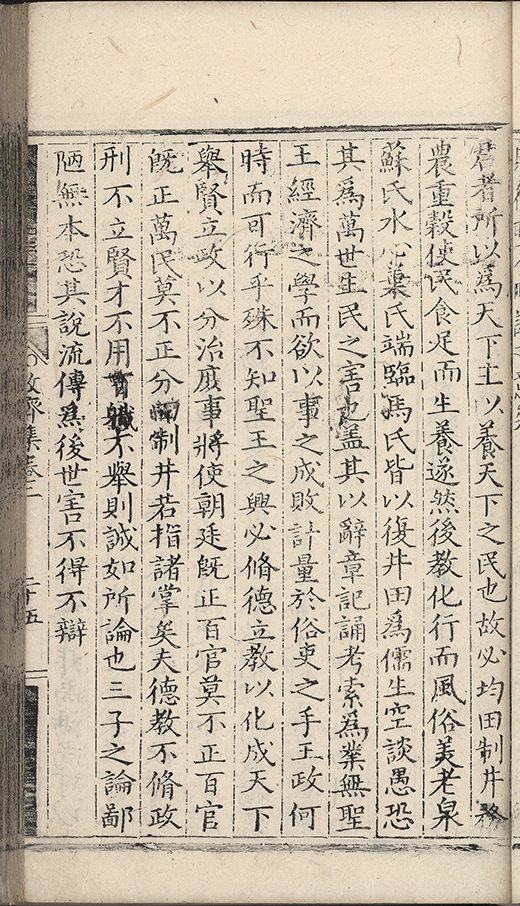 君者所以爲天下主以養天下之民也故必均田制井務
農重穀使民食足而生養遂然後教化行而風俗美老泉
蘇氏水心葉氏端臨馬氏皆以復井田爲儒生空談愚恐
其爲萬世生民之害也盖其以辭章記誦考索爲業無聖
王經濟之學而欲以事之成敗計量於俗吏之手王政何
時而可行乎殊不知聖王之興必脩德立教以化成天下
舉賢立政以分治庶事將使朝廷旣正百官莫不正百官
旣正萬民莫不正分田制井若指諸掌矣夫德教不脩政
刑不立賢才不用百職不舉則誠如所論也三子之論鄙
陋無本恐其說流傳爲後世害不得不辯
敬齊集卷二 二十五